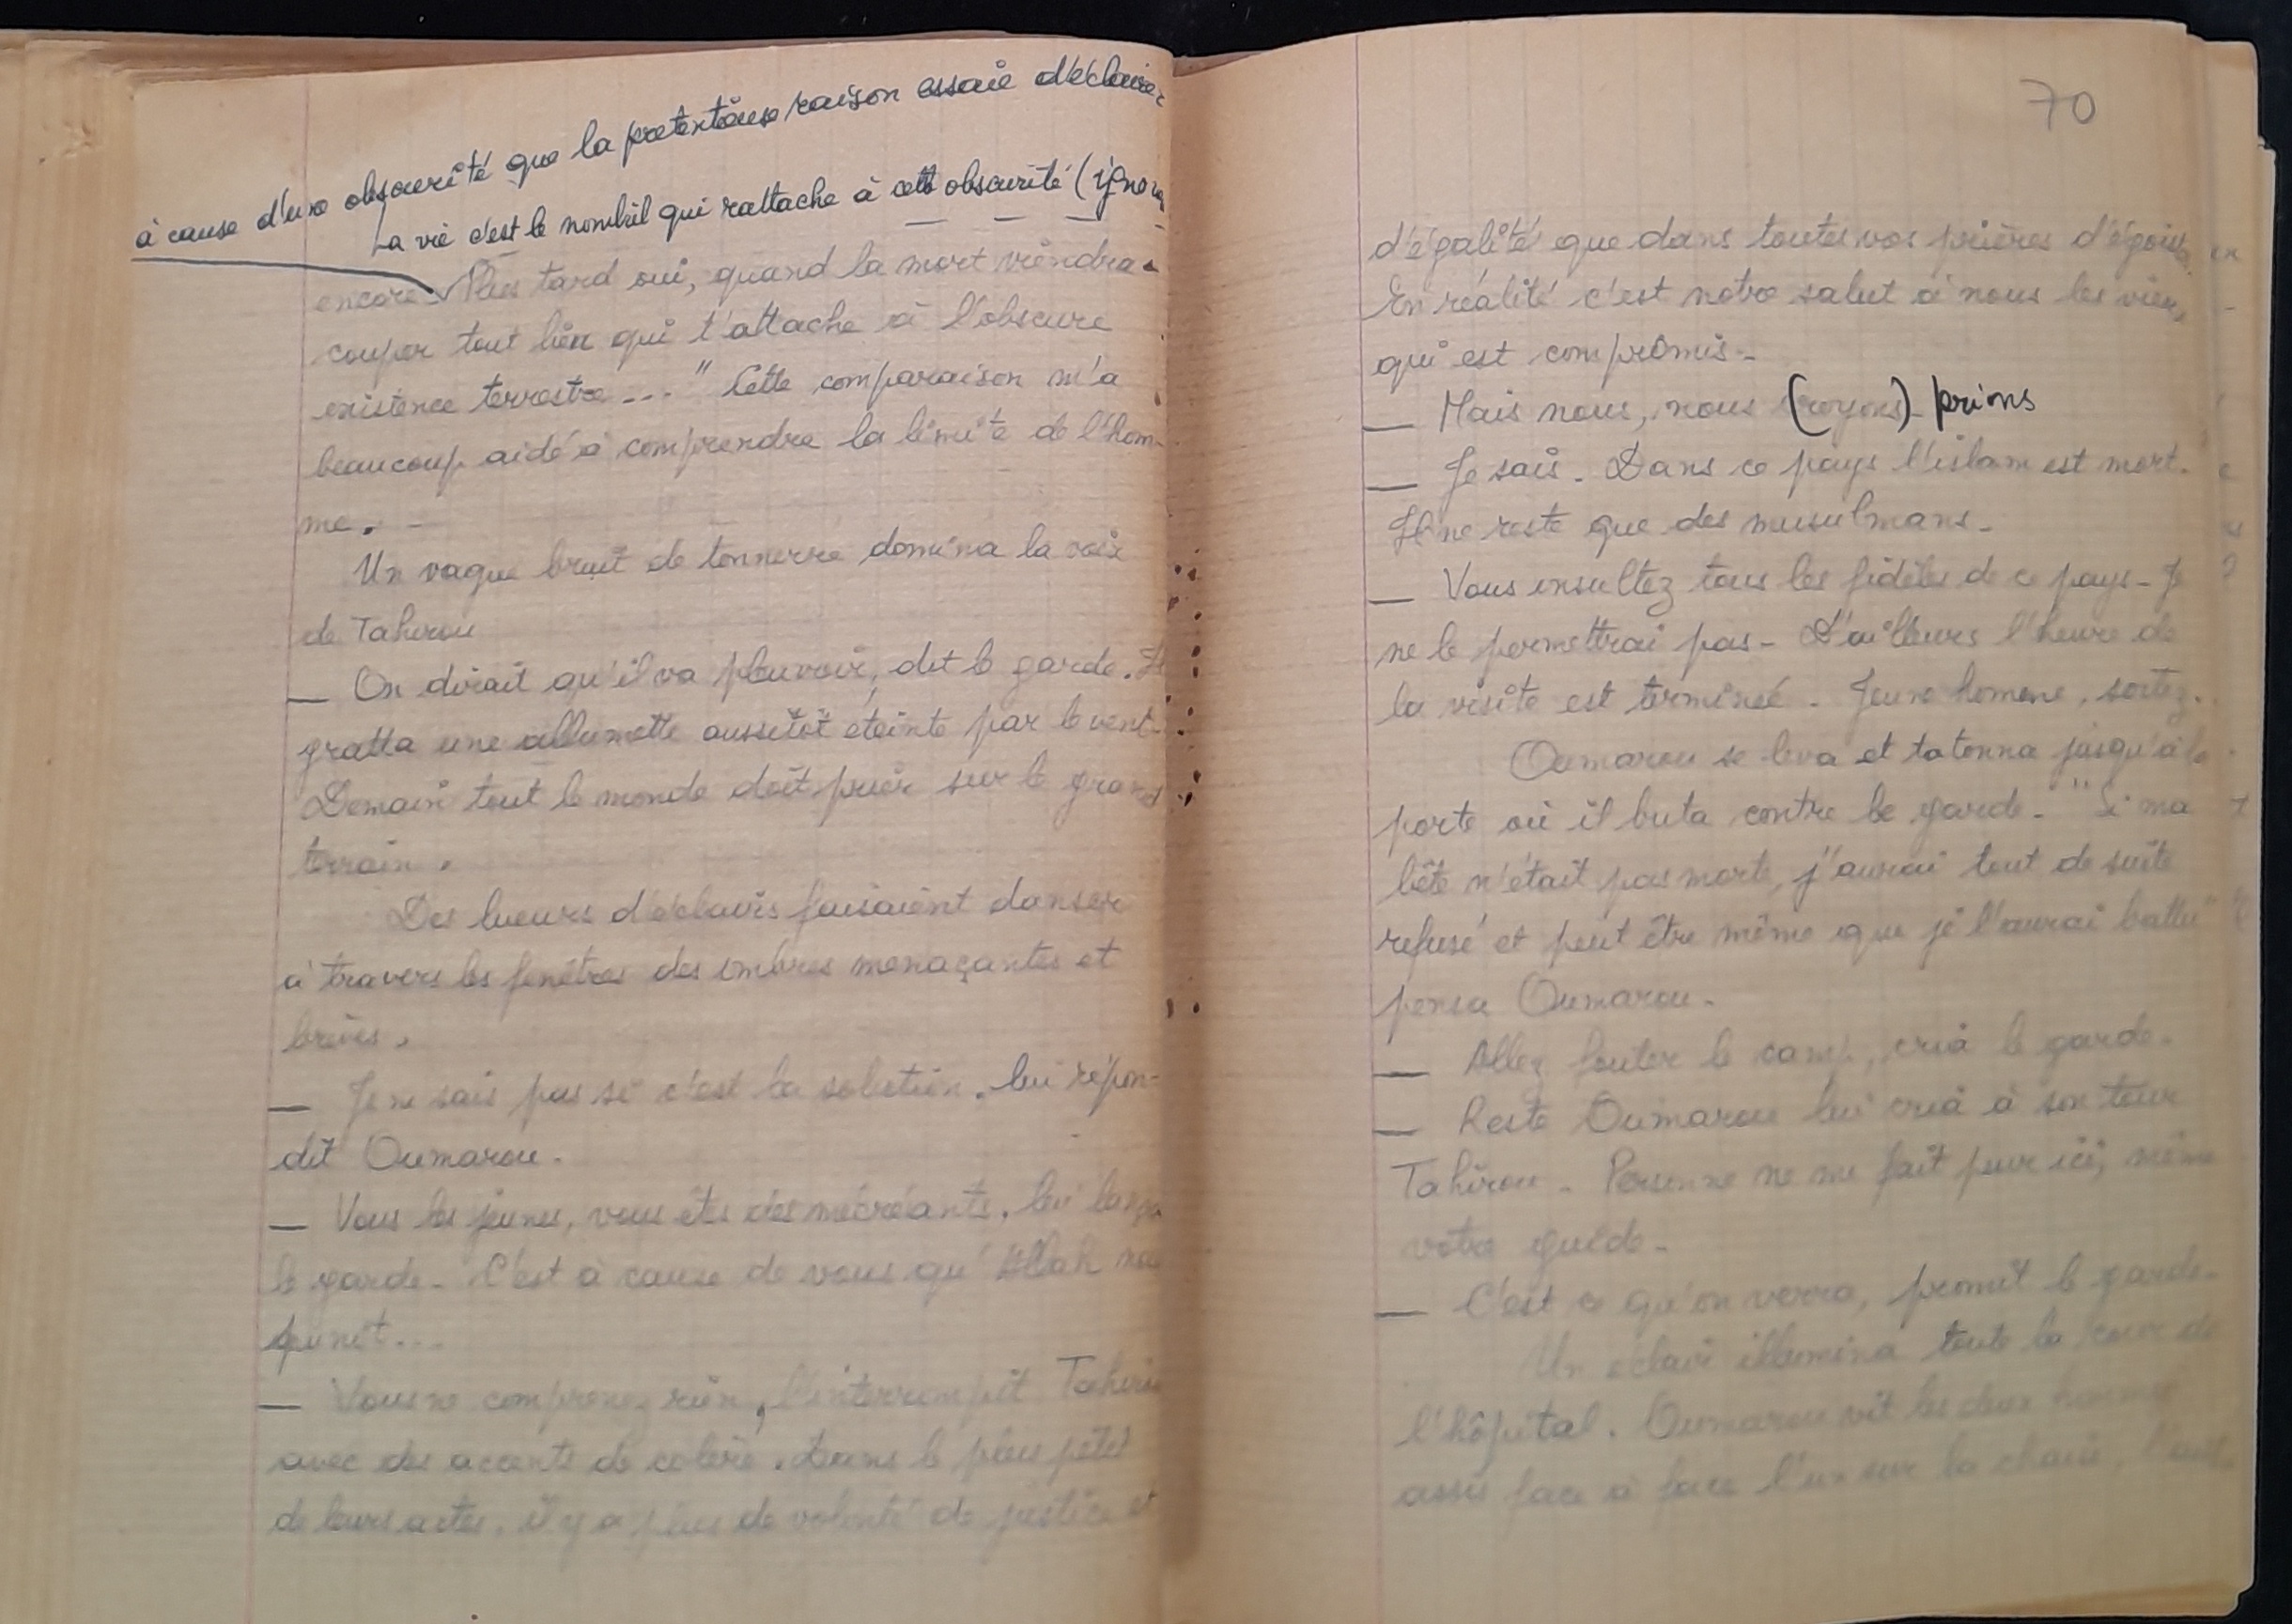 à cause d'une obscurité que la pretentieuse raison essaie d'éclairer
La vie c'est le nombril qui rattache à cette obscurité (ignora
encore. Plus tard oui, quand la mort viendra
couper tout lien qui t'attache à l'obscure
existence terrestre...." Cette comparaison m'a
beaucoup aidé à comprendre la limite de l'hom-
me.
Un vague bruit de tonnerre domina la voix
de Tahirou
— On dirait qu'il va pleuvoir, dit le garde. Il
gratta une allumette aussitôt éteinte par le vent.
Demain tout le monde doit prier sur le grand
terrain.
Des lueurs d'éclairs faisaient danser
à travers les fenêtres des ombres menaçantes et
brèves.
— Je ne sais pas si c'est la solution. lui répon-
dit Oumarou.
— Vous les jeunes, vous êtes des mécréants. lui lança
le garde. C'est à cause de vous qu'Allah nous
punit...
— Vous ne comprenez rien, l'interrompit Tahirou
avec des accents de colère. Dans le plus petit
de leurs actes, il y a plus de volonté de justice et
70
d'égalité que dans toutes vos prières d'égoïstes.
En réalité c'est notre salut à nous les vieux,
qui est compromis.
— Mais nous, nous (croyons). prions
— Je sais. Dans ce pays l'islam est mort.
Il ne reste que des musulmans.
— Vous insultez tous les fidèles de ce pays. Je
ne le permettrai pas. D'ailleurs l'heure de
la visite est terminée. Jeune homme, sortez.
Oumarou se leva et tatonna jusqu'à la
porte où il buta contre le garde. "Si ma
bête n'était pas morte, j'aurai tout de suite
refusé et peut être même que je l'aurai battu"
pensa Oumarou.
— Allez fouter le camp, cria le garde.
— Reste Oumarou lui cria à son tour
Tahirou. Personne ne me fait peur ici, même
votre guide.
— C'est ce qu'on verra, promit le garde.
Un éclair illumina toute la cour de
l'hôpital. Oumarou vit les deux hommes
assis face à face l'un sur la chaise, l'aut